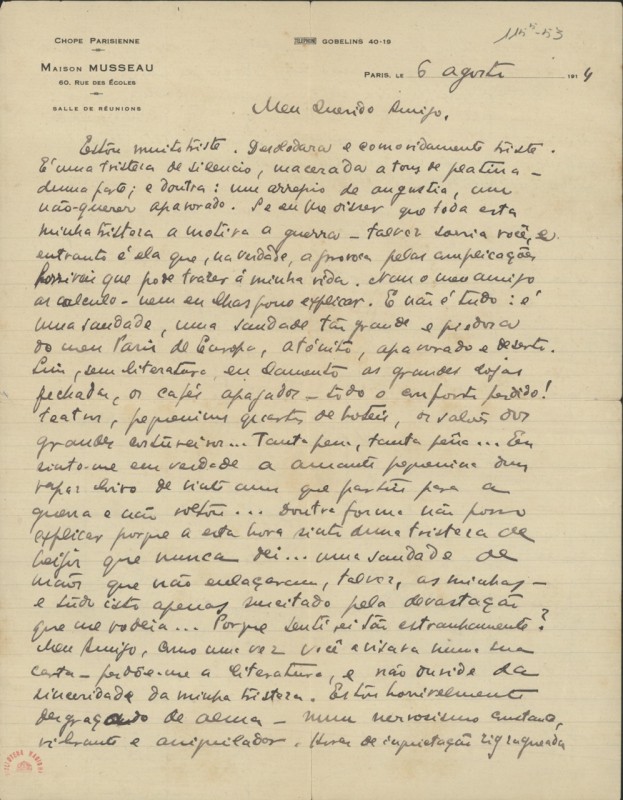 CHOPE PARISIENNE
TÉLÉPHONE GOBELINS 40-19
115⁵-53
MAISON MUSSEAU
60, RUE DES ÉCOLES
SALLE DE RÉUNIONS
PARIS, LE 6 agosto 1914
Meu Querido Amigo,
Estou muito triste. Desoladora e comovidamente triste.
É uma tristeza de silencio, macerada a tons de platina –
duma parte; e doutra: um arrepio de angustia, um
não-querer apavorado. Se eu lhe disser que toda esta
minha tristeza a motiva a guerra – talvez sorria você, e
entretanto é ela que, na verdade, a provoca pelas complicações
possiveis que pode trazer á minha vida. Nem o meu amigo
as calcula – nem eu lhas posso explicar. E não é tudo: é
uma saudade, uma saudade tão grande e piedosa
do meu Paris de Europa, atónito, apavorado e deserto.
Sim, sem literatura, eu lamento as grandes lojas
fechadas, os cafés apagados – todo o conforto perdido!
teatros, pequeninos quartos de hoteis, os salões dos
grandes costureiros... Tanta pena, tanta pena... Eu
sinto-me em verdade a amante pequenina dum
rapaz loiro de vinte anos que partiu para a
guerra e não voltou... Doutra forma não posso
explicar porque a esta hora sinto duma tristeza de
beijos que nunca dei... uma saudade de
mãos que não enlaçaram, talvez, as minhas –
e tudo isto apenas suscitado pela devastação
que me rodeia... Porque sentirei tão estranhamente?
Meu Amigo, como uma vez você avisava numa sua
carta – perdõe-me a literatura, e não duvide da
sinceridade da minha tristeza. Estou horrivelmente
desgraçado de alma – num nervosismo constante,
vibrante e aniquilador. Horas de inquietação zig-zagueada